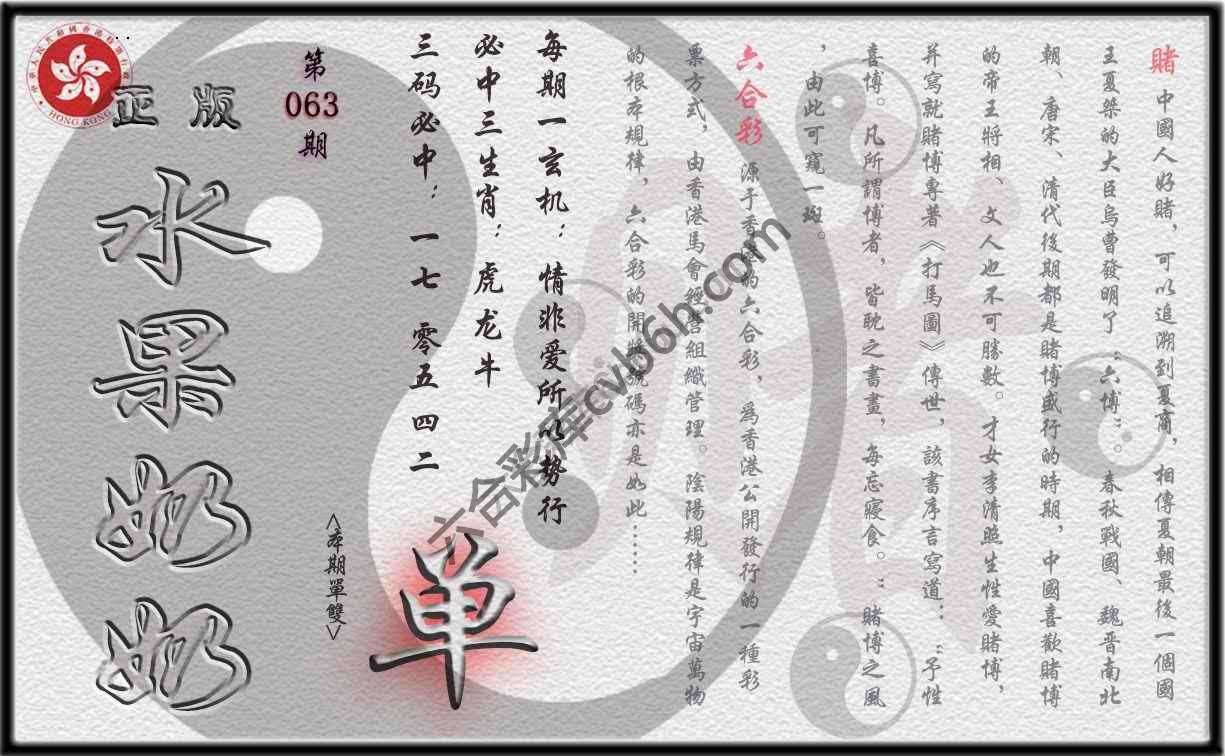 賭 中國人好賭，可以追溯到夏商，相傳夏朝最後一個國
王夏桀的大臣烏曹發明了“六博”。春秋戰國、魏晋南北
朝、唐宋、清代後期都是賭博盛行的時期，中國喜歡賭博
的帝王將相、文人也不可勝數。才女李清照生性愛賭博，
并寫就賭博專著《打馬圖》傳世，該書序言寫道：“予性
喜博。凡所謂博者，皆耽之書畫，每忘寢食。”賭博之風
，由此可窺一斑。
六合彩 源于香港的六合彩，爲香港公開發行的一種彩
票方式，由香港馬會經營組織管理。陰陽規律是宇宙萬物
的根本規律，六合彩的開獎號碼亦是如此……
每期一玄机：情非爱所以势行
必中三生肖：虎龙牛
三码必中：一七 零五 四二
单
<本期單雙>
第
063
期
正版
水果奶奶
HONG KONG
六合彩库cvb6h.com